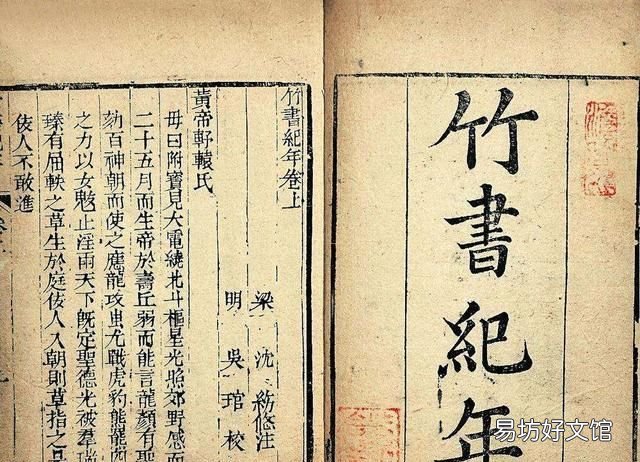 竹書紀年
竹書紀年卷上
梁 沈 注
明 吳 琯 校
黃帝軒轅氏
母曰附寶見大電繞北斗樞星光照郊野感而
二十五月而生帝於壽丘弱而能言龍顏有聖
劾百神朝而使之應龍攻蚩尤戰虎豹熊羆四
之力以女魃止淫雨天下既定聖德光被羣瑞
臻有屈軼之草生於庭佞人入朝則草指之是
佞人不敢進
易坊好文馆